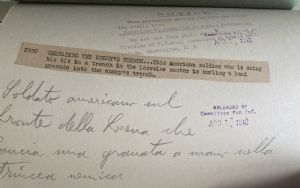 NOTE
Division of Pictures, Committee
Washington, D. C.
5750 GRENADING THE ENEMY'S TRENCH...This American soldier who is doing
his bit in a trench in the Lorraine sector is hurling a hand
grenade into the enemy's trench.
RELEASED BY
Committee Pub. Inf.
1918
Soldato americano sul
fronte della Lorena che
lancia una granata a mano nella
trincea nemica